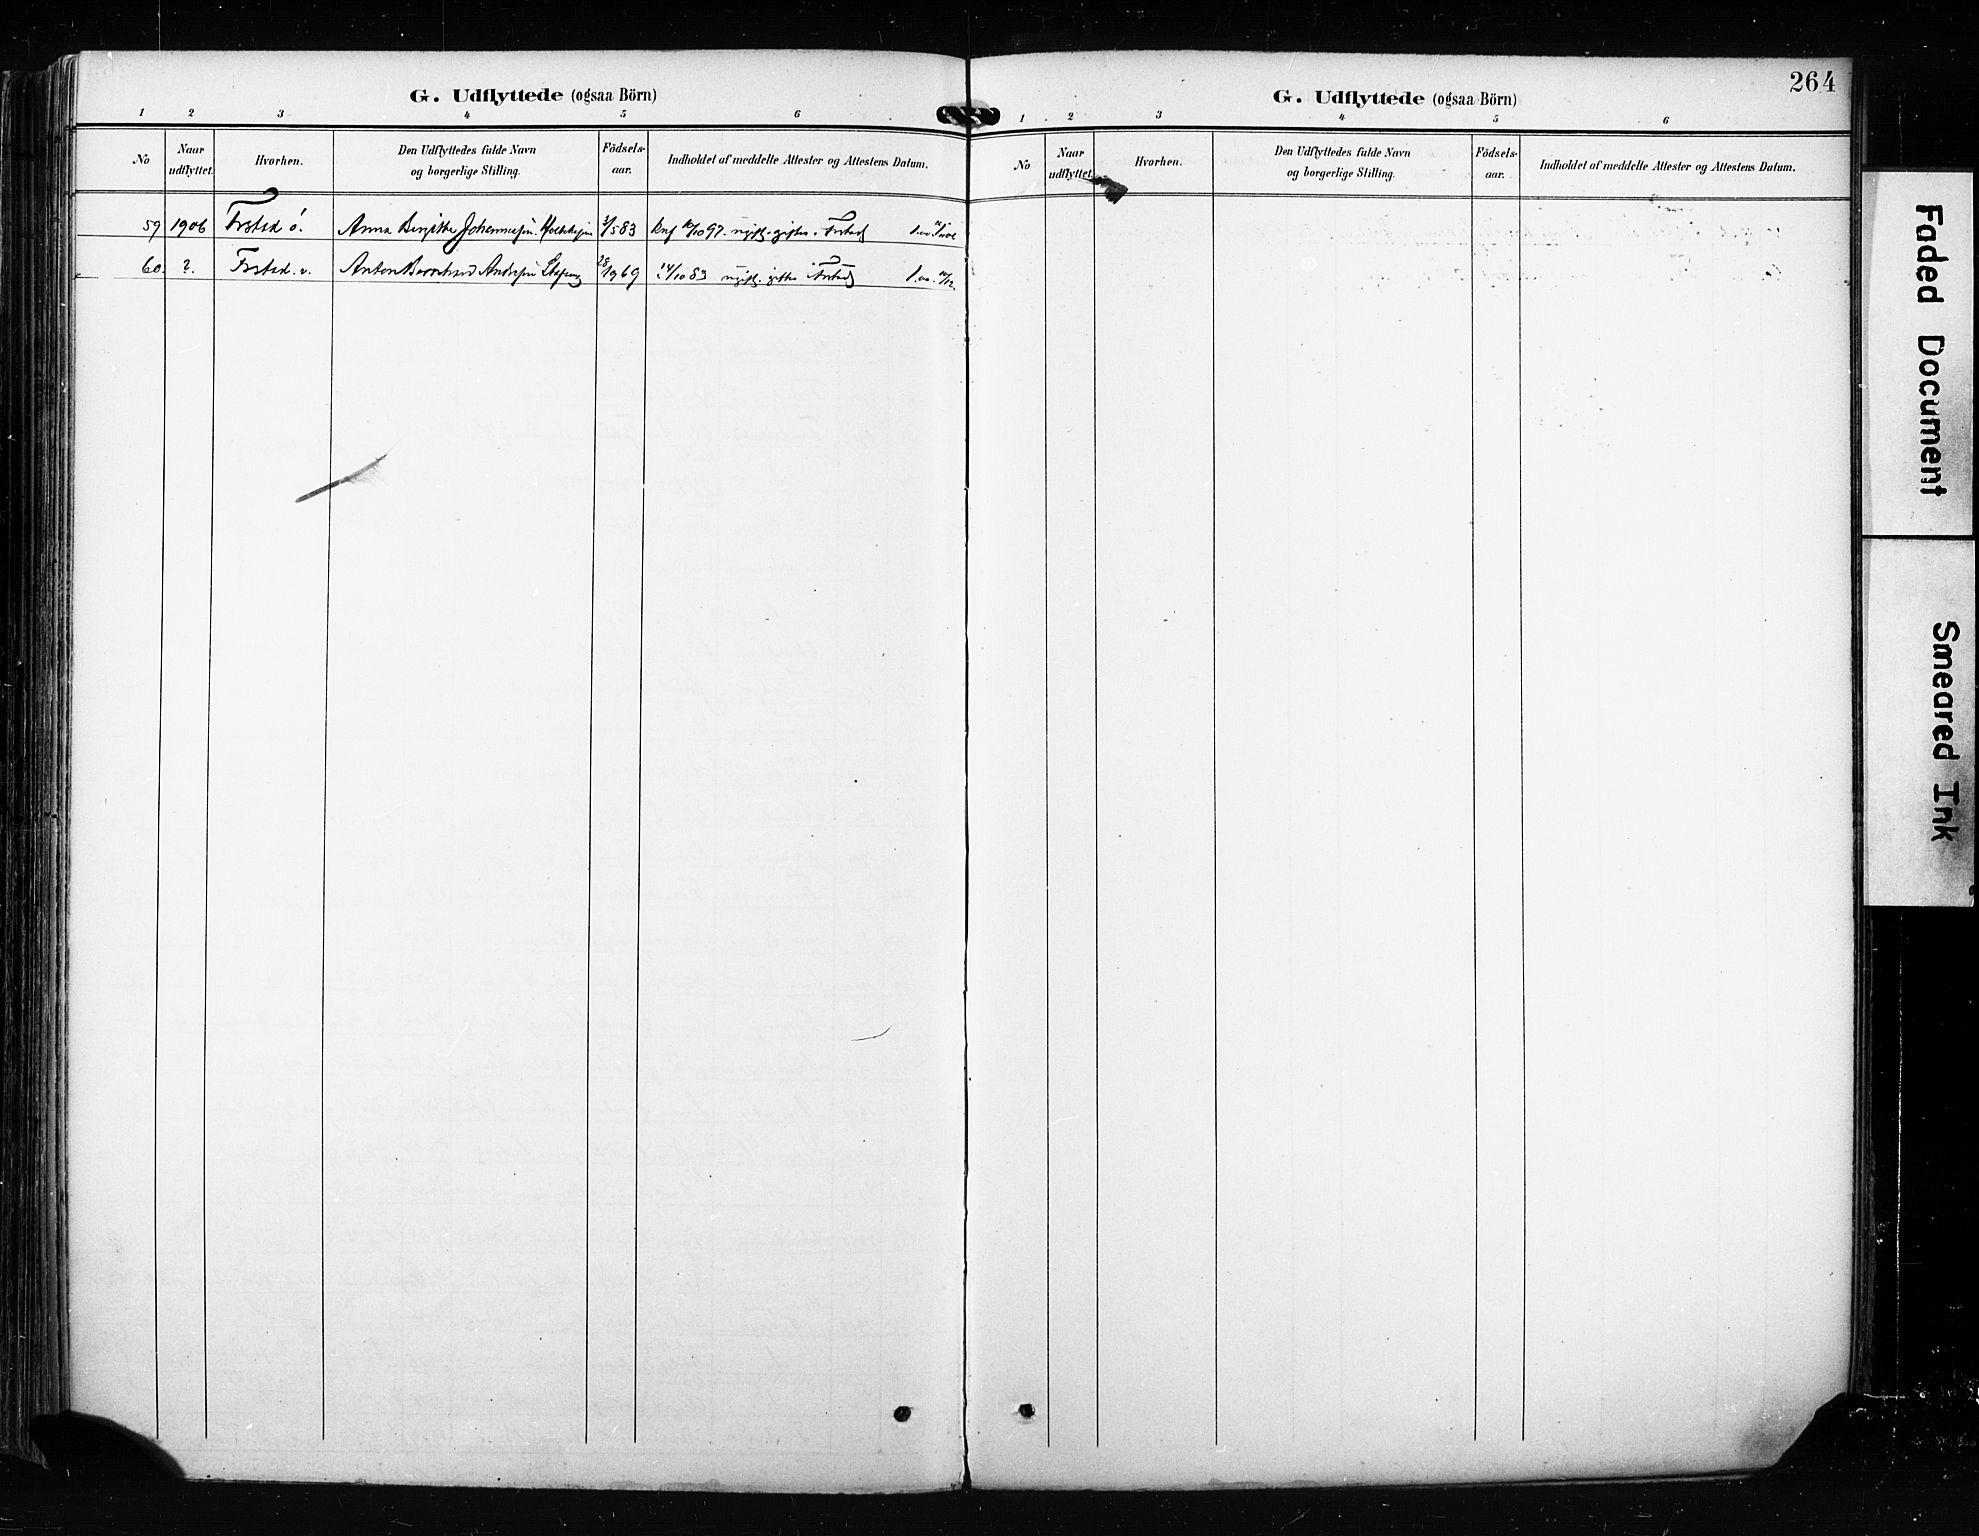 264
G. Udflyttede (ogsaa Börn)
1 2 3 4 5 6
No
Naar udflyttet.
Hvorhen.
Den Udflyttedes fulde Navn og borgerlige Stilling.
Födsels-aar.
Indholdet af meddelte Attester og Attestens Datum.
59 1906 Frstad ö. Anna Birgitte 3/5 83 97. ugift. giftes
60. ?. Frstad. v. Anton Bernhard 28/9 69 14/10 83 ugift. giftes
G. Udflyttede (ogsaa Börn)
1 2 3 4 5 6
No
Naar udflyttet.
Hvorhen.
Den Udflyttedes fulde Navn og borgerlige Stilling.
Födsels-aar.
Indholdet af meddelte Attester og Attestens Datum.
Faded Document
Smeared Ink